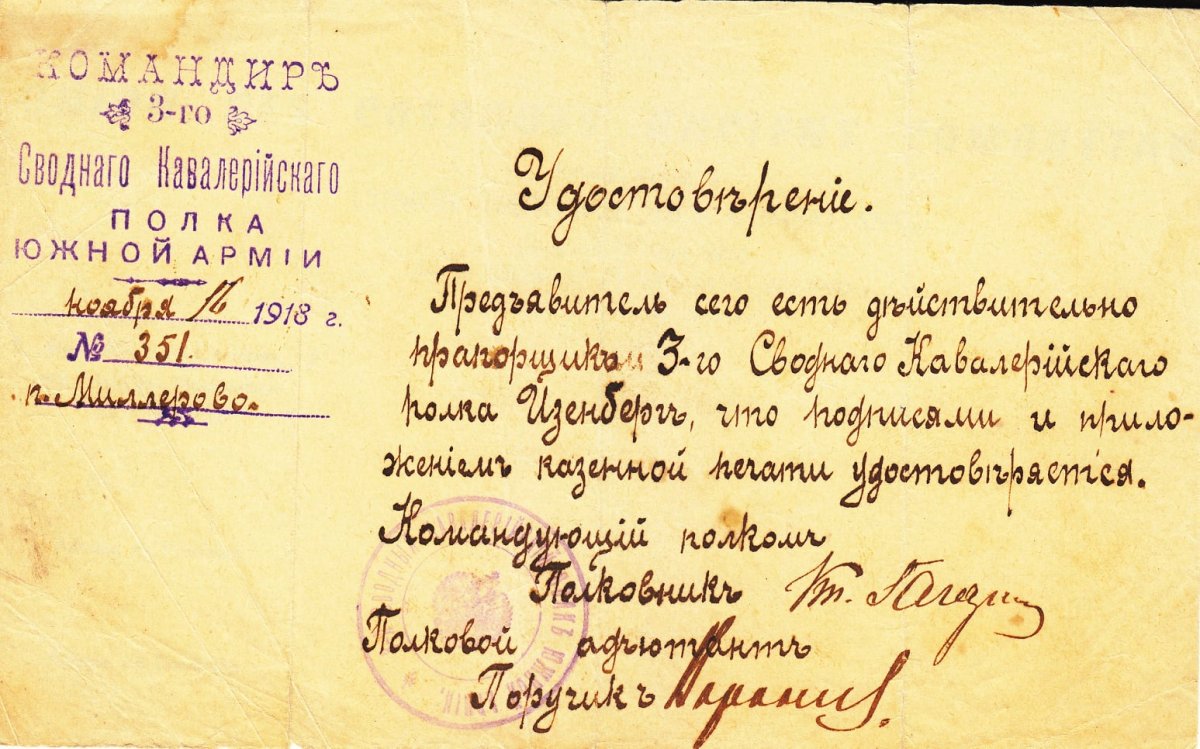 КОМАНДИРЪ
3-го
Своднаго Кавалерійскаго
ПОЛКА
ЮЖНОЙ АРМІИ
ноября 16 1918 г.
№ 351.
п. Миллерово.
Удостовѣреніе.
Предъявитель сего есть дѣйствительно
прапорщикъ 3-го Своднаго Кавалерійскаго
полка Изенбергъ, что подписями и прило-
женіемъ казенной печати удостовѣряется.
Командующій полкомъ
Полковникъ
Полковой адъютантъ
Поручикъ